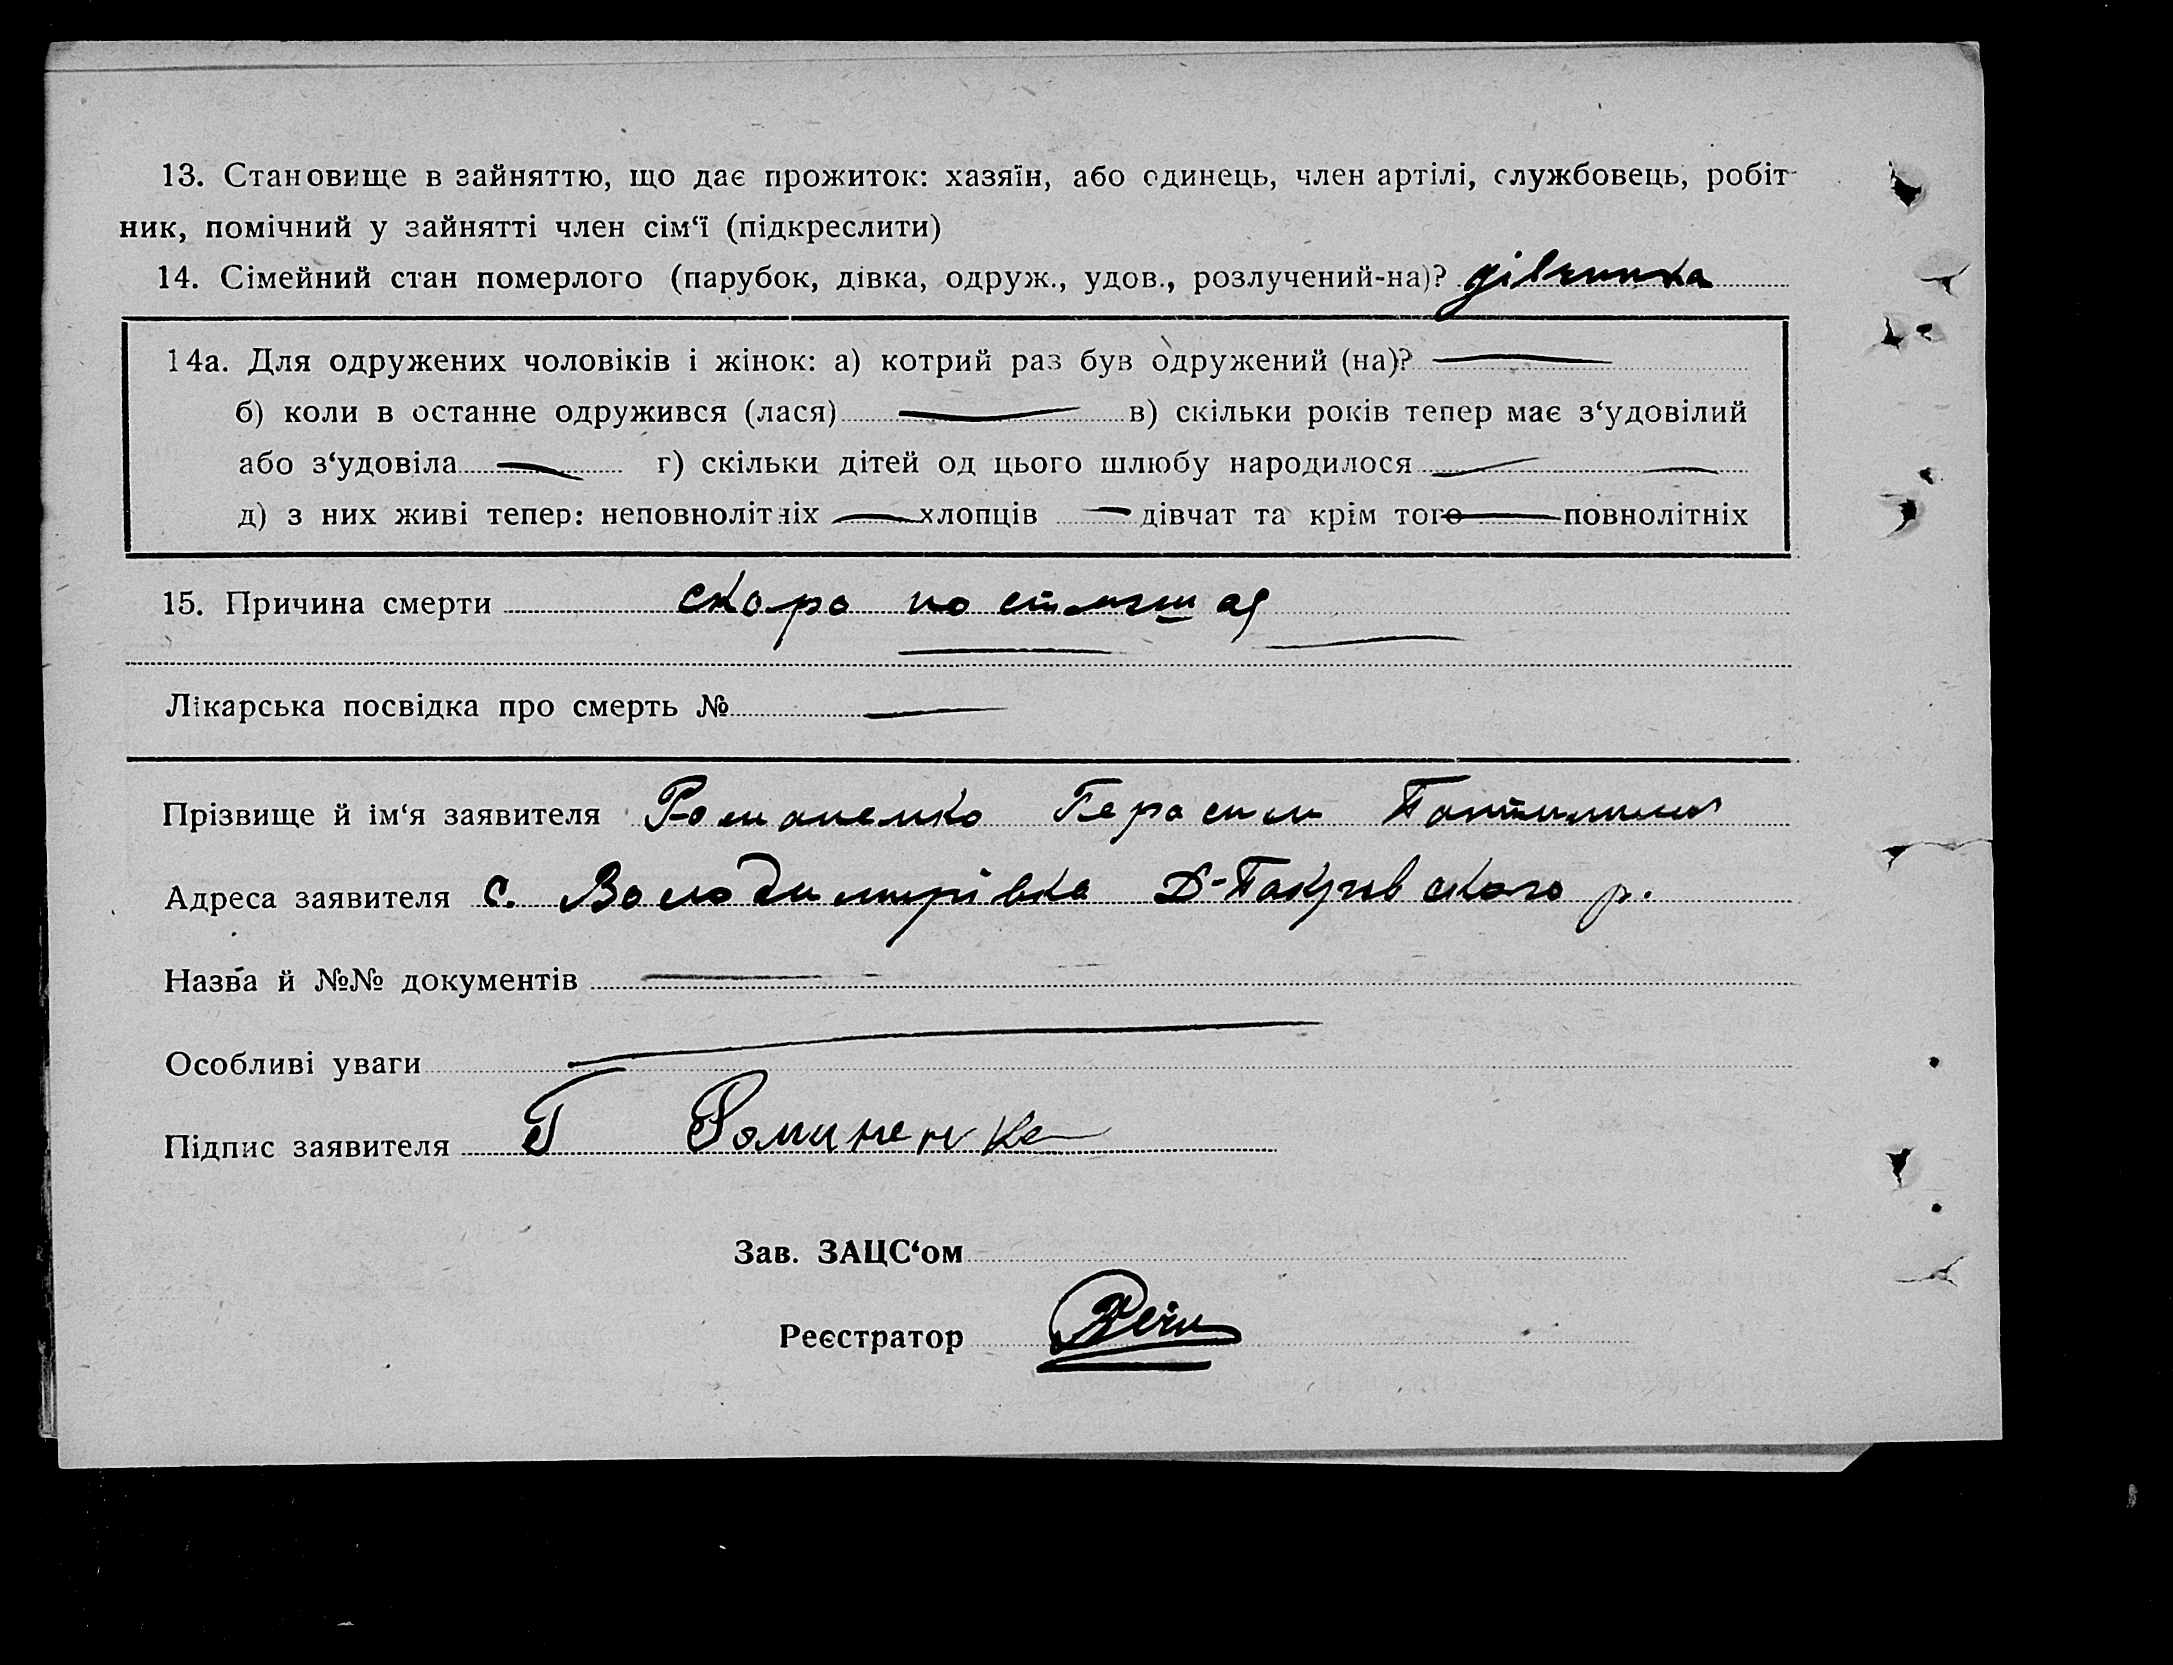 13. Становище в зайняттю, що дає прожиток: хазяїн, або одинець, член артілі, службовець, робіт-
ник, помічний у зайнятті член сім‘ї (підкреслити)
14. Сімейний стан померлого (парубок, дівка, одруж., удов., розлучений-на)? дівчинка
14а. Для одружених чоловіків і жінок: а) котрий раз був одружений (на)? —
б) коли в останне одружився (лася) — в) скільки років тепер має з‘удовілий
або з‘удовіла — г) скільки дітей од цього шлюбу народилося —
д) з них живі тепер: неповнолітніх — хлопців — дівчат та крім того — повнолітніх
15. Причина смерти скоро
Лікарська посвідка про смерть № —
Прізвище й ім‘я заявителя Романенко Герасим
Адреса заявителя с. Володимирівка Д-Покровского р.
Назва й №№ документів —
Особливі уваги —
Підпис заявителя Г Романенко
Зав. ЗАЦС‘ом
Реєстратор